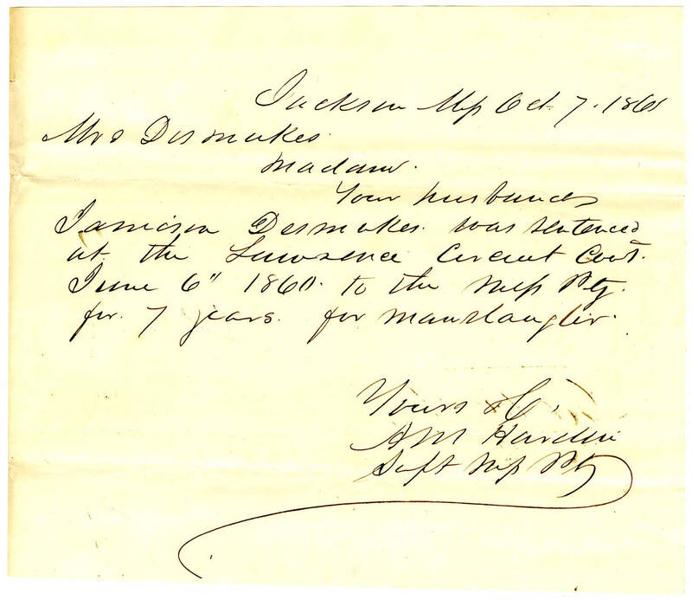 Jackson Mss Oct 7. 1861
Mrs Desmukes.
Madam.
Your husband
Jamison Desmukes. was sentenced
at the Lawrence Circuit Cort.
June 6" 1860. to the Miss Pty.
for. 7 years. for Manslaughter.
Yours &C,
AM Hardin
Supt Miss Pty